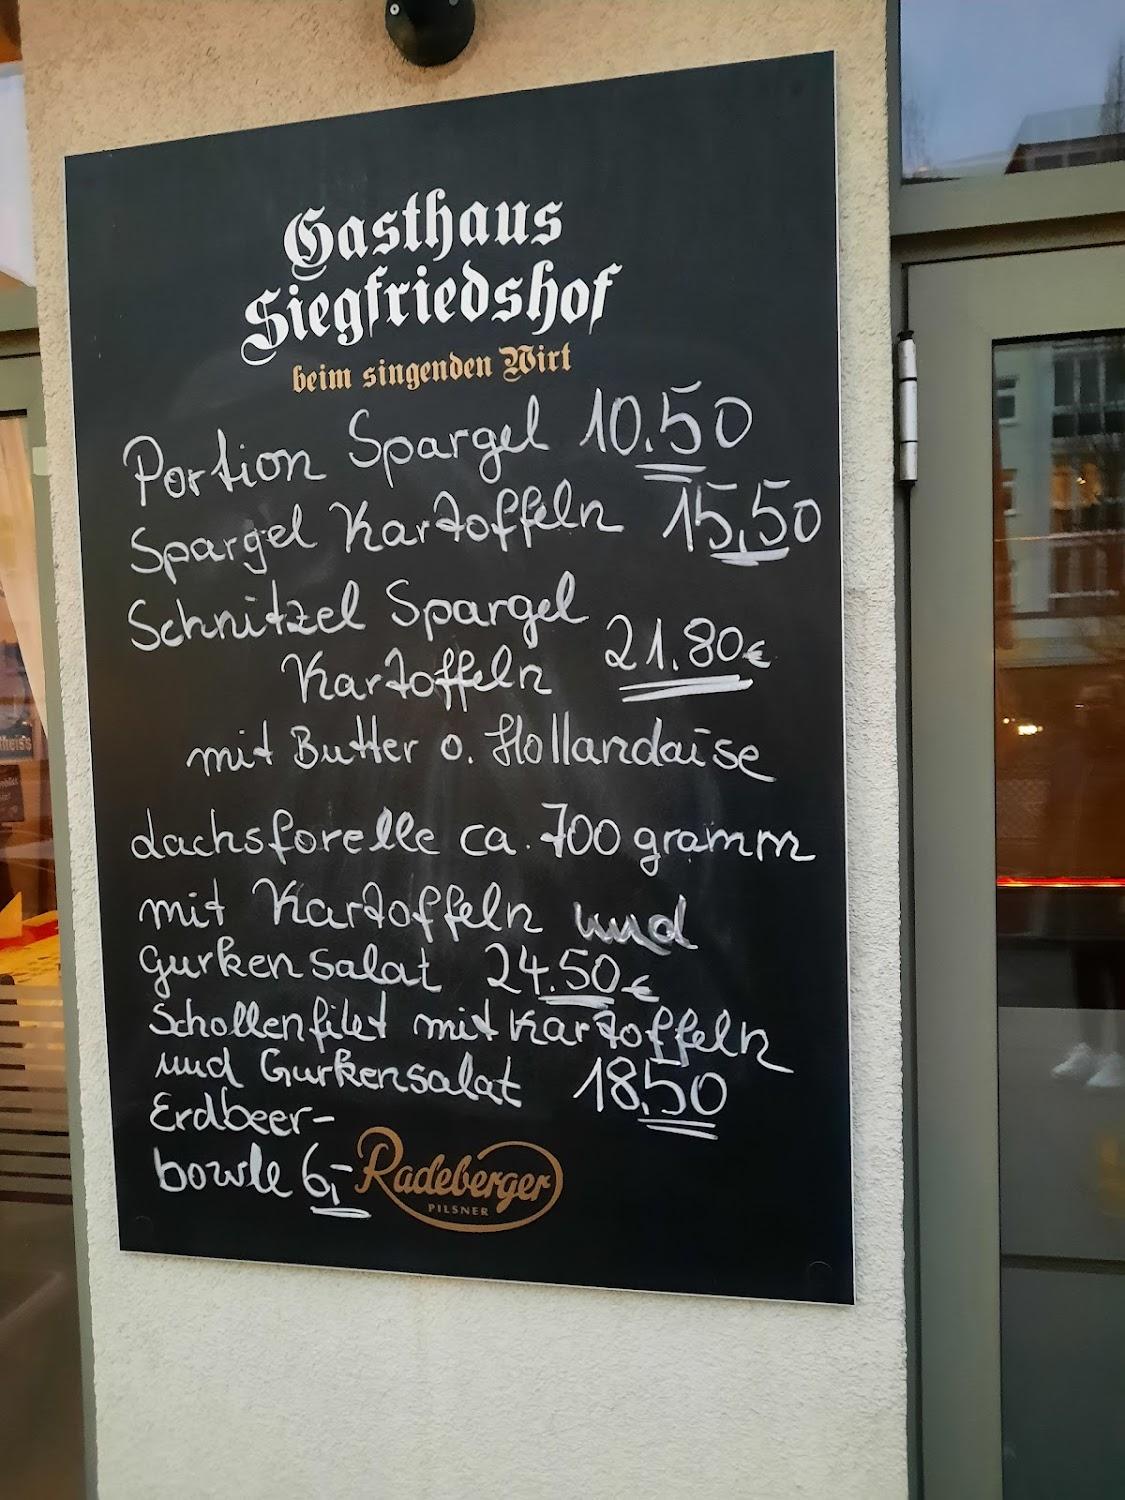 Gasthaus
Siegfriedshof
beim singenden Wirt
Portion Spargel 10.50
Spargel Kartoffeln 15,50
Schnitzel Spargel
Kartoffeln 21.80€
mit Butter o. Hollandaise
dachsforelle ca. 700 gramm
mit Kartoffeln und
gurkensalat 24.50€
Schollenfilet mit Kartoffeln
und Gurkensalat 18,50
Erdbeer-
bowle 6,-
Radeberger
PILSNER